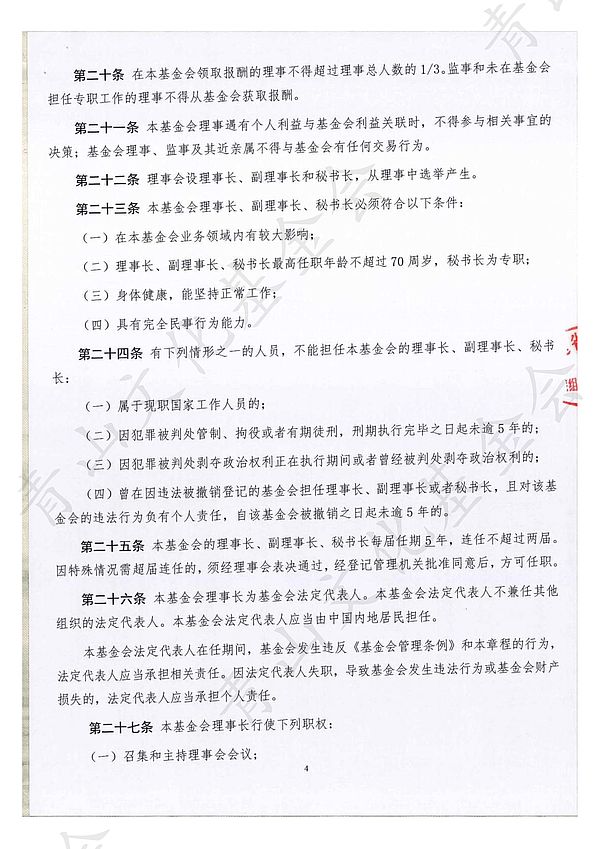 第二十条 在本基金会领取报酬的理事不得超过理事总人数的 1/3。监事和未在基金会
担任专职工作的理事不得从基金会获取报酬。
第二十一条 本基金会理事遇有个人利益与基金会利益关联时，不得参与相关事宜的
决策；基金会理事、监事及其近亲属不得与基金会有任何交易行为。
第二十二条 理事会设理事长、副理事长和秘书长，从理事中选举产生。
第二十三条 本基金会理事长、副理事长、秘书长必须符合以下条件：
（一）在本基金会业务领域内有较大影响；
（二）理事长、副理事长、秘书长最高任职年龄不超过 70 周岁，秘书长为专职；
（三）身体健康，能坚持正常工作；
（四）具有完全民事行为能力。
第二十四条 有下列情形之一的人员，不能担任本基金会的理事长、副理事长、秘书
长：
（一）属于现职国家工作人员的；
（二）因犯罪被判处管制、拘役或者有期徒刑，刑期执行完毕之日起未逾 5 年的；
（三）因犯罪被判处剥夺政治权利正在执行期间或者曾经被判处剥夺政治权利的；
（四）曾在因违法被撤销登记的基金会担任理事长、副理事长或者秘书长，且对该基
金会的违法行为负有个人责任，自该基金会被撤销之日起未逾 5 年的。
第二十五条 本基金会的理事长、副理事长、秘书长每届任期 5 年，连任不超过两届。
因特殊情况需超届连任的，须经理事会表决通过，经登记管理机关批准同意后，方可任职。
第二十六条 本基金会理事长为基金会法定代表人。本基金会法定代表人不兼任其他
组织的法定代表人。本基金会法定代表人应当由中国内地居民担任。
本基金会法定代表人在任期间，基金会发生违反《基金会管理条例》和本章程的行为，
法定代表人应当承担相关责任。因法定代表人失职，导致基金会发生违法行为或基金会财产
损失的，法定代表人应当承担个人责任。
第二十七条 本基金会理事长行使下列职权：
（一）召集和主持理事会会议；
4
青山文化基金会
青山文化基金会